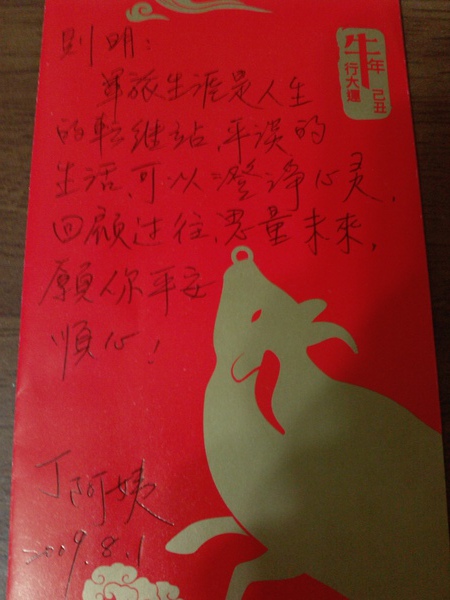 則明:
軍旅生涯是人生
的転維站,平淡的
生活,可以澄淨心灵,
回顧过往,思量未來,
願你平安
順心!
丁阿姨
2009.8.1
牛年
行大運
己丑